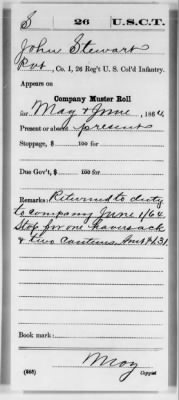 S 26 U.S.C.T.
John Stewart
Pvt, Co. I, 26 Reg't U. S. Col'd Infantry.
Appears on
Company Muster Roll
for May & June, 1864
Present or absent present
Stoppage, $ 100 for
Due Gov't, $ 100 for
Remarks: Returned to duty
to company June 1/64
Stop for one haversack
& two canteens. Amt $1.31
Book mark:
May
(505) Copyist.